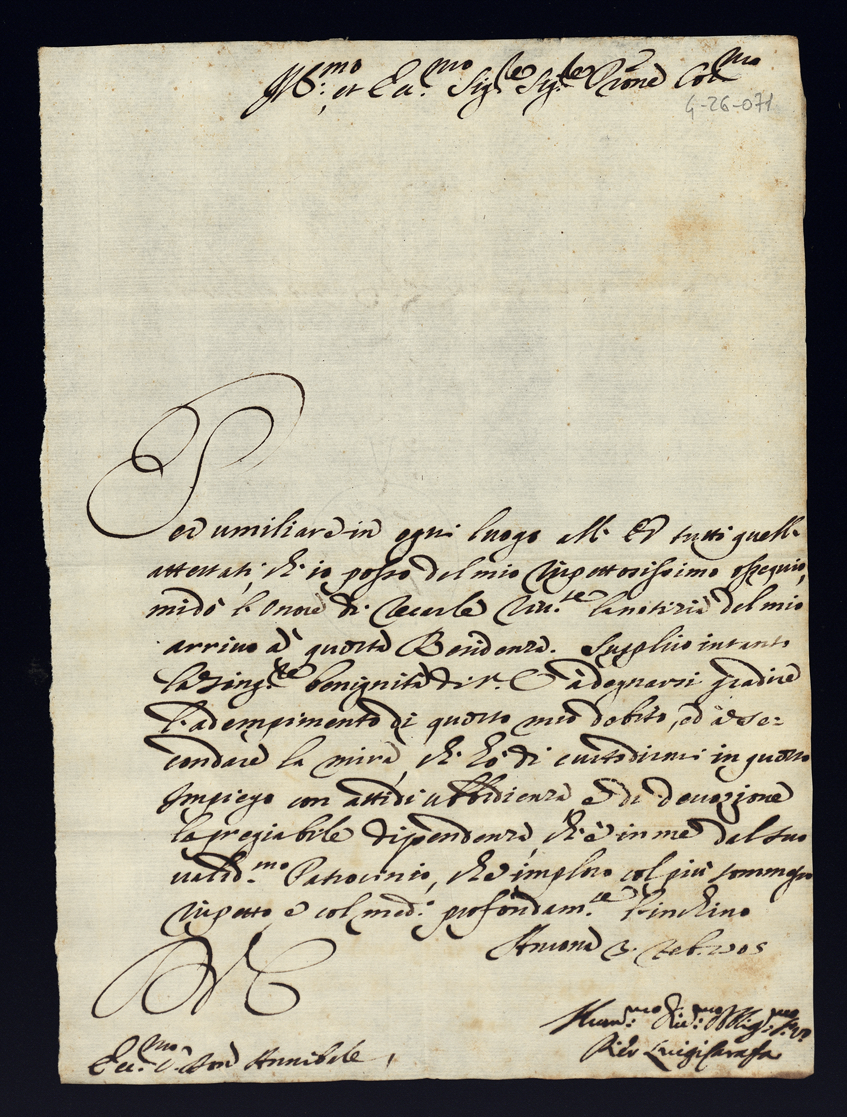 Ill:mo, et Ecc:mo Sig:re Sig:re Pron̄e Col:mo
4-26-071
Per umiliare in ogni luogo all' E.V. tutti quelli
attestati, ch'io posso del mio rispettosissimo ossequio,
mi dò l'onore di recarle riv:te la notizia del mio
arrivo à questa Residenza. Supplico intanto
la sing:re benignità di V.E. à degnarsi gradire
l'adempimento di questo mio debito, ed à se=
condare la mira, ch'hò di custodirmi in questo
Impiego con atti di ubbidienza e di devozione
la pregiabile dipendenza, ch'è in me dal suo
valid:mo Patrocinio, che imploro col più sommesso
rispetto e col med:o profondam:te l'inchino
Ancona 3. Feb: 1705
D V E
Hum:mo Div:mo Oblig:mo Ser:re
Pier Luigi Carafa
Ecc:mo S. Don Annibale